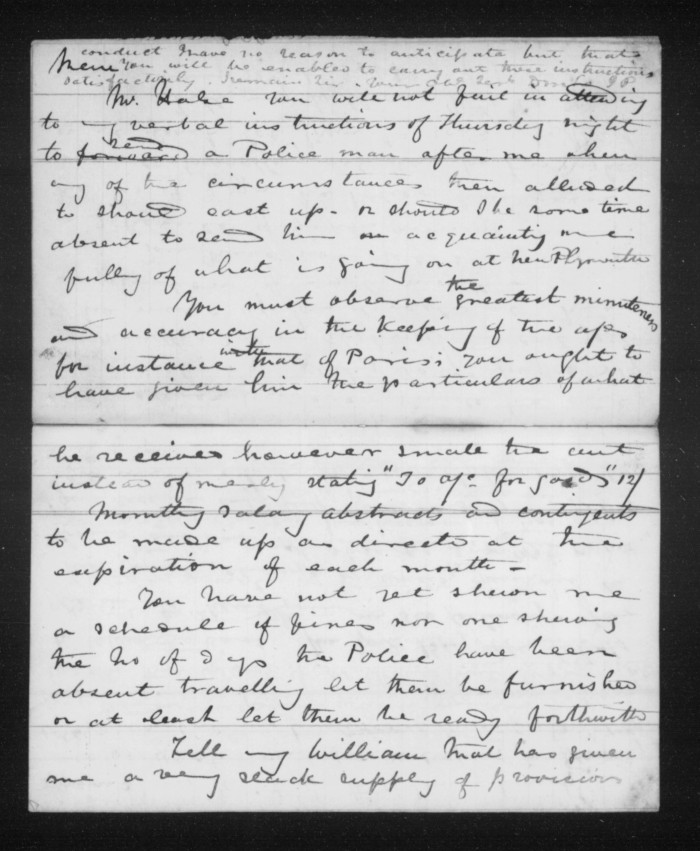 conduct I have no reason to anticipate but that
Mem You will be enabled to carry out these instructions
satisfactorily. I remain Sir Your
Mr. Halse You will not fail in attending
to my verbal instructions of Thursday night
send
to forward a Police man after me when
any of the circumstances then alluded
to should cast up - or should I be some time
absent to send him on acquainting me
fully of what is going on at New Plymouth
You must observe the greatest minuteness
and accuracy in the keeping of the a/cs
for instance with that of Paris; you ought to
have given him the particulars of what
he received however small the amt
instead of merely stating "To a/c for goods" 12/
Monthly Salary abstracts and contingents
to be made up as directed at the
expiration of each month -
You have not yet shewn me
a schedule of fines nor one shewing
the No of days the Police have been
absent travelling let them be furnished
or at least let them be ready forthwith
Tell my William that has given
me a very slack supply of provisions